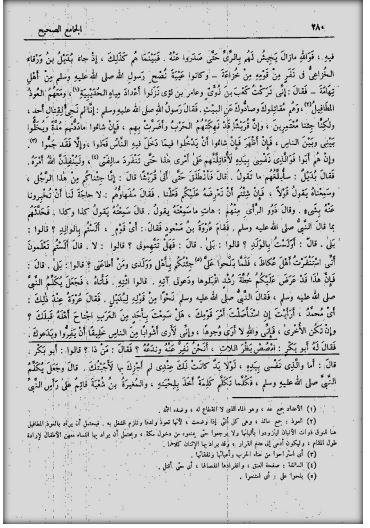 ٢٨٠ الجامع الصحيح
فيه ، فوالله مازال يجيش لهم بالري حتى صدروا عنه . فبينما هم كذلك ، إذ جاء بديل بن ورقاء
الخزاعى فى نفر من قومه من خزاعة – وكانوا عيبة نصح رسول الله صلى الله عليه وسلم من أهل
تهامة – فقال : إنى تركت كعب بن لؤى وعامر بن لؤى نزلوا أعداد مياه الحديبية (١) ، ومعهم العوذ
المطافيل (٢) ، وهم مقاتلوك وصادوك عن البيت . فقال رسول الله صلى الله عليه وسلم : إنا لم نجئ لقتال أحد ،
ولكنا جئنا معتمرين ، وإن قريشا قد نهكتهم الحرب وأضرت بهم ، فإن شاءوا ماددتهم مدة ويخلوا
بينى وبين الناس ، فإن أظهر فإن شاءوا أن يدخلوا فيما دخل فيه الناس فعلوا ، وإلا فقد جموا (٣) ،
وإن هم أبوا فوالذى نفسى بيده لأقاتلنهم على أمرى هذا حتى تنفرد سالفتى (٤) ، ولينفذن الله أمره .
فقال بديل : سأبلغهم ما تقول . قال فانطلق حتى أتى قريشا قال : إنا جئناكم من هذا الرجل ،
وسمعناه يقول قولا ، فإن شئتم أن نعرضه عليكم فعلنا . فقال سفهاؤهم : لا حاجة لنا أن تخبرونا
عنه بشىء . وقال ذوو الرأى منهم : هات ما سمعته يقول . قال سمعته يقول كذا وكذا ، فحدثهم
بما قال النبى صلى الله عليه وسلم ، فقام عروة بن مسعود فقال : أى قوم ، ألستم بالوالد ؟ قالوا :
بلى . قال : أولست بالولد ؟ قالوا : بلى . قال : فهل تتهمونى ؟ قالوا : لا . قال ألستم تعلمون
أنى استنفرت أهل عكاظ ، فلما بلحوا على (٥) جئتكم بأهلى وولدى ومن أطاعنى ؟ قالوا : بلى . قال :
فإن هذا قد عرض عليكم خطة رشد اقبلوها ودعونى آتيه . قالوا : ائته . فأتاه ، فجعل يكلم النبى
صلى الله عليه وسلم ، فقال النبى صلى الله عليه وسلم نحوا من قوله لبديل . فقال عروة عند ذلك :
أى محمد ، أرأيت إن استأصلت أمر قومك ، هل سمعت بأحد من العرب اجتاح أهله قبلك ؟
وإن تكن الأخرى ، فإنى والله لا أرى وجوها ، وإنى لأرى أشوابا من الناس خليقا أن يفروا ويدعوك .
فقال له أبو بكر : امصص بظر اللات ، أنحن نفر عنه وندعه ؟ فقال : من ذا ؟ قالوا : أبو بكر .
قال : أما والذى نفسى بيده ، لولا يد كانت لك عندى لم أجزك بها لأجبتك . قال وجعل يكلم
النبى صلى الله عليه وسلم ، فكلما تكلم كلمة أخذ بلحيته ، والمغيرة بن شعبة قائم على رأس النبى
(١) الأعداد جمع عد ، وهو الماء الذى لا انقطاع له ،
(٢) العوذ : جمع عائذ ، وهى كل أنثى إذا وضعت ،
(٣) أى استراحوا من عناء الحرب
(٤) السالفة : صفحة العنق ، وانفرادها انفصالها ، أى حتى أقتل .
(٥) بلحوا على : أى امتنعوا .